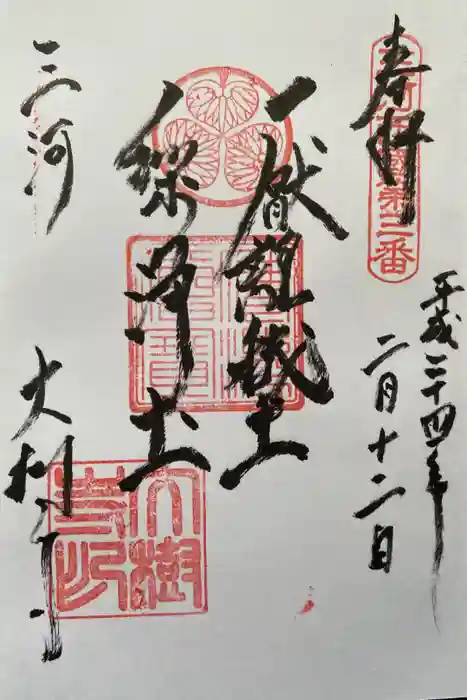 奉拝
平成二十四年
二月十二日
厭離穢土
欣求浄土
三河
大樹寺
佛法
僧寶
大樹
寺印